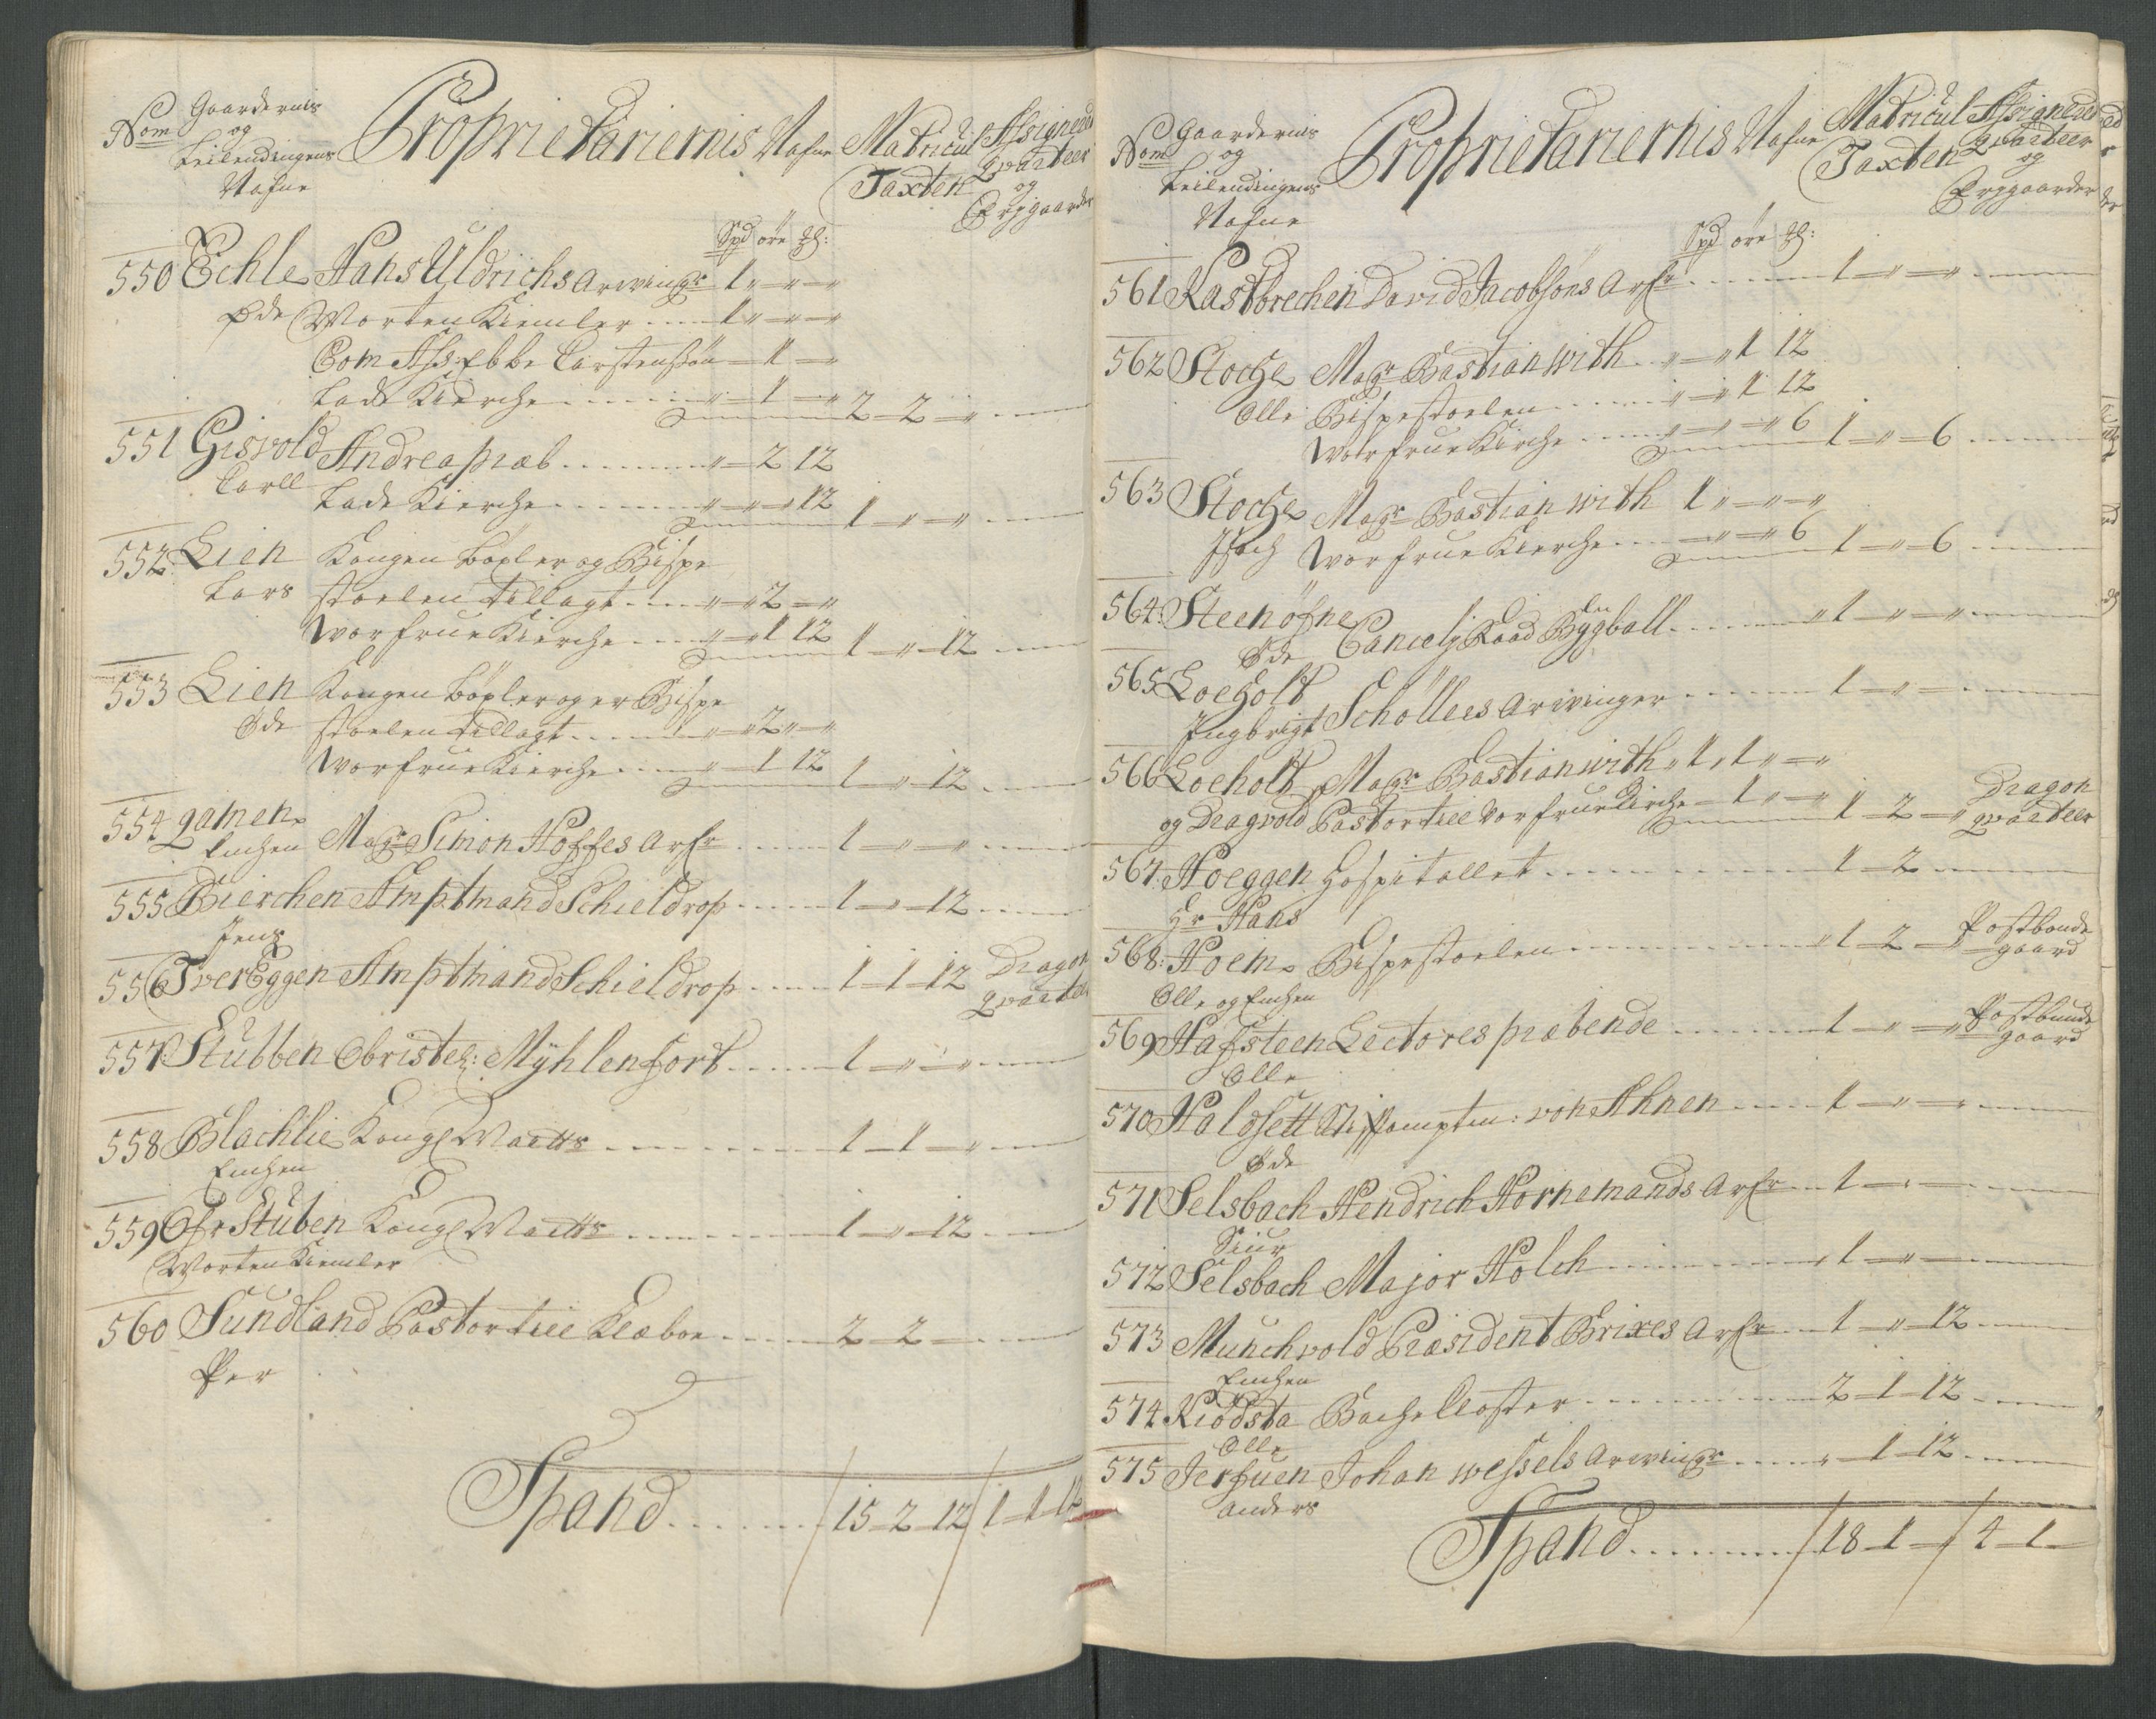 No
om
Gaardernis
og
Leilendingens
Nafne
Proprietariernis Nafne
Matricul
Taxten
Assignerd
qvarteer
og
Frigaarder
Spd öre ℔:
550 Echle Hans Uldrichs Arwinger 1 " "
Öde Morten Kiemler 1 " "
Com Ass: Ebbe Carstensön 1 "
Lade Kierche " 1 " 2 2 "
551 Gisvold Andrea præb " 2 12
Carll
Lade Kierche " " 12 1 " "
552 Lien Kongen böxler og Bispe
Lars stoelen tillagt " 2 "
Worfrue Kierche " 1 12 1 " 12
553 Lien Kongen böxler og er Bispe
Öde stoelen tillagt " 2 "
Worfrue Kierche " 1 12 1 " 12
554 qamen
Enchen Magr Simon Hoffes Arfr 1 " "
555 Bierchen Amptmand Schieldrop 1 " 12
Jens
556 Tvereggen Amptmand Schieldrop 1 1 12 Dragon
qvarteer
557 Stubben Obristel: Mÿhlenfort 1 " "
558 Blachlie Kongl Maitts 1 1 "
Enchen
559 Ofr Stuben Kongl Maitts 1 " 12
Morten Kiemler
560 Sundland Pastor till Klæboe 2 2
Per
Spand 15 2 12 1 1 12
No
om
Gaardernis
og
Leilendingens
Nafne
Proprietariernis Nafne
Matricul
Taxten
Assignerd
qvarteer
og
Frigaarder
Spd öre ℔:
561 Kastbrechen David Jacobsöns Arfr 1 " "
562 Stoche Magr Bastian With " 1 12
Olle Bispestoelen " 1 12
Worfrue Kirche " " 6 1 " 6
563 Stoche Magr Bastian With 1 " "
Isach Worfrue Kierche " " 6 1 " 6
564 Steenöfne Cancelj Raad Bygball 1 " "
Öde
565 Loeholt
Ingbrigt Schöllers Arwinger 1 "
566 Loeholt Magr Bastian With " 1 " "
og Dragvold Pastor till Vorfrue Kirche 1 " " 1 2 " Dragon
qvarteer
567 Hoeggen Hospitallet 1 2
Hr Hans
568 Hoem Bispestoelen 1 2 " Postbonde
gaard
Olle og Enchen
569 Hafsteen Lectores præbende 1 " " Postbunde
gaard
Olle
570 Haldsett von Ahnen 1 "
Öde
571 Selsbach Hendrich Hornemands Arfr 1 "
Siur
572 Selsbach Major Holch 1 "
573 Munchvold Præsident Brixes Arfr 1 " 12
Enchen
574 Kiödsta Bache Closter 2 1 12
Olle
575 Jerfuen Johan Wessels Arwingr " 1 12
Anders
Spand 18 1 " 4 1